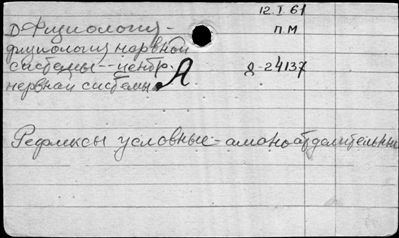 12.I.61
D Физиология - П.М
физиология нервной
системы--центр. A Д-24137
нервная система
Рефлексы условные-слюноотделительные